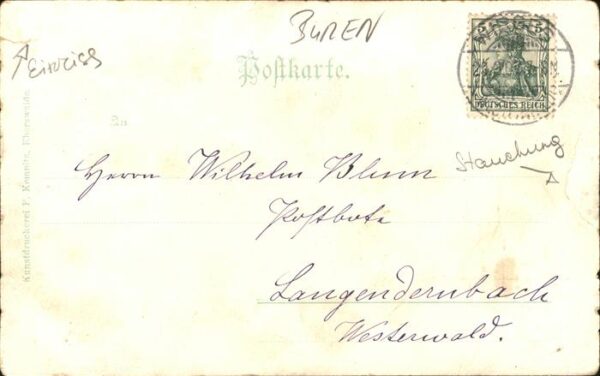 BUREN
Einriss
Postkarte.
2a
Herrn Wilhelm Blum
Postbote
Langendernbach
Westerwald.
Stauchung
DEUTSCHES REICH
Kunstdruckerei F. Kemnitz, Eberswalde.